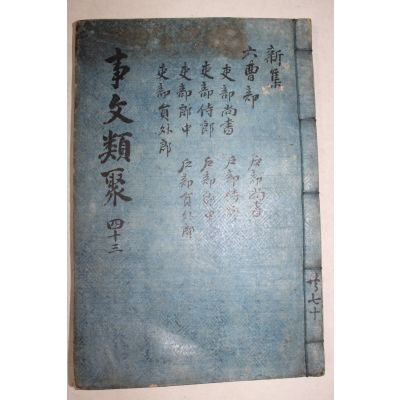 新集
六曹部
吏部尚書 戶部尚書
吏部侍郎 戶部侍郎
吏部郎中 戶部郎中
吏部員外郎 戶部員外郎
事文類聚 四十三
共七十